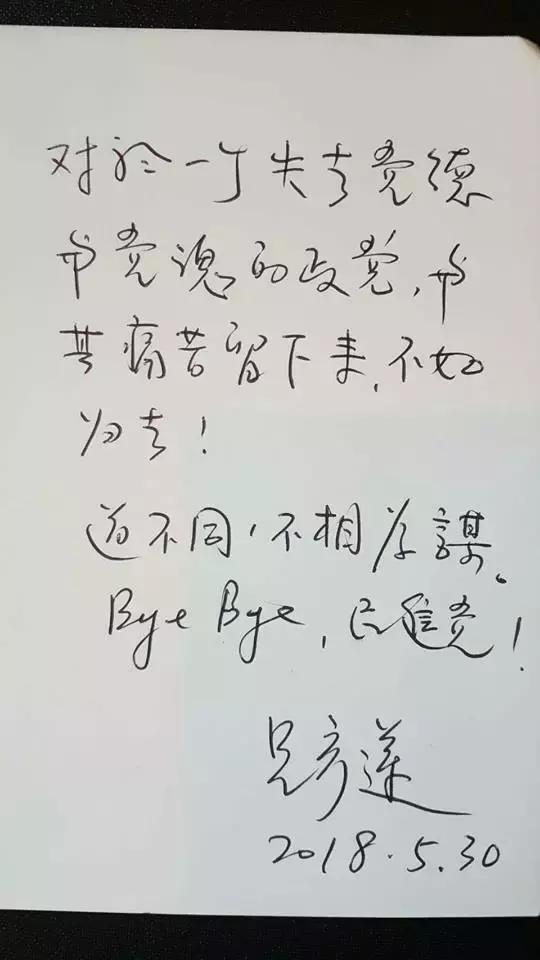 对於一个失去党德
与党魂的政党，与
其痛苦留下来，不如
归去！
道不同，不相为謀。
Bye Bye，民進党！
吕彦蓮
2018.5.30